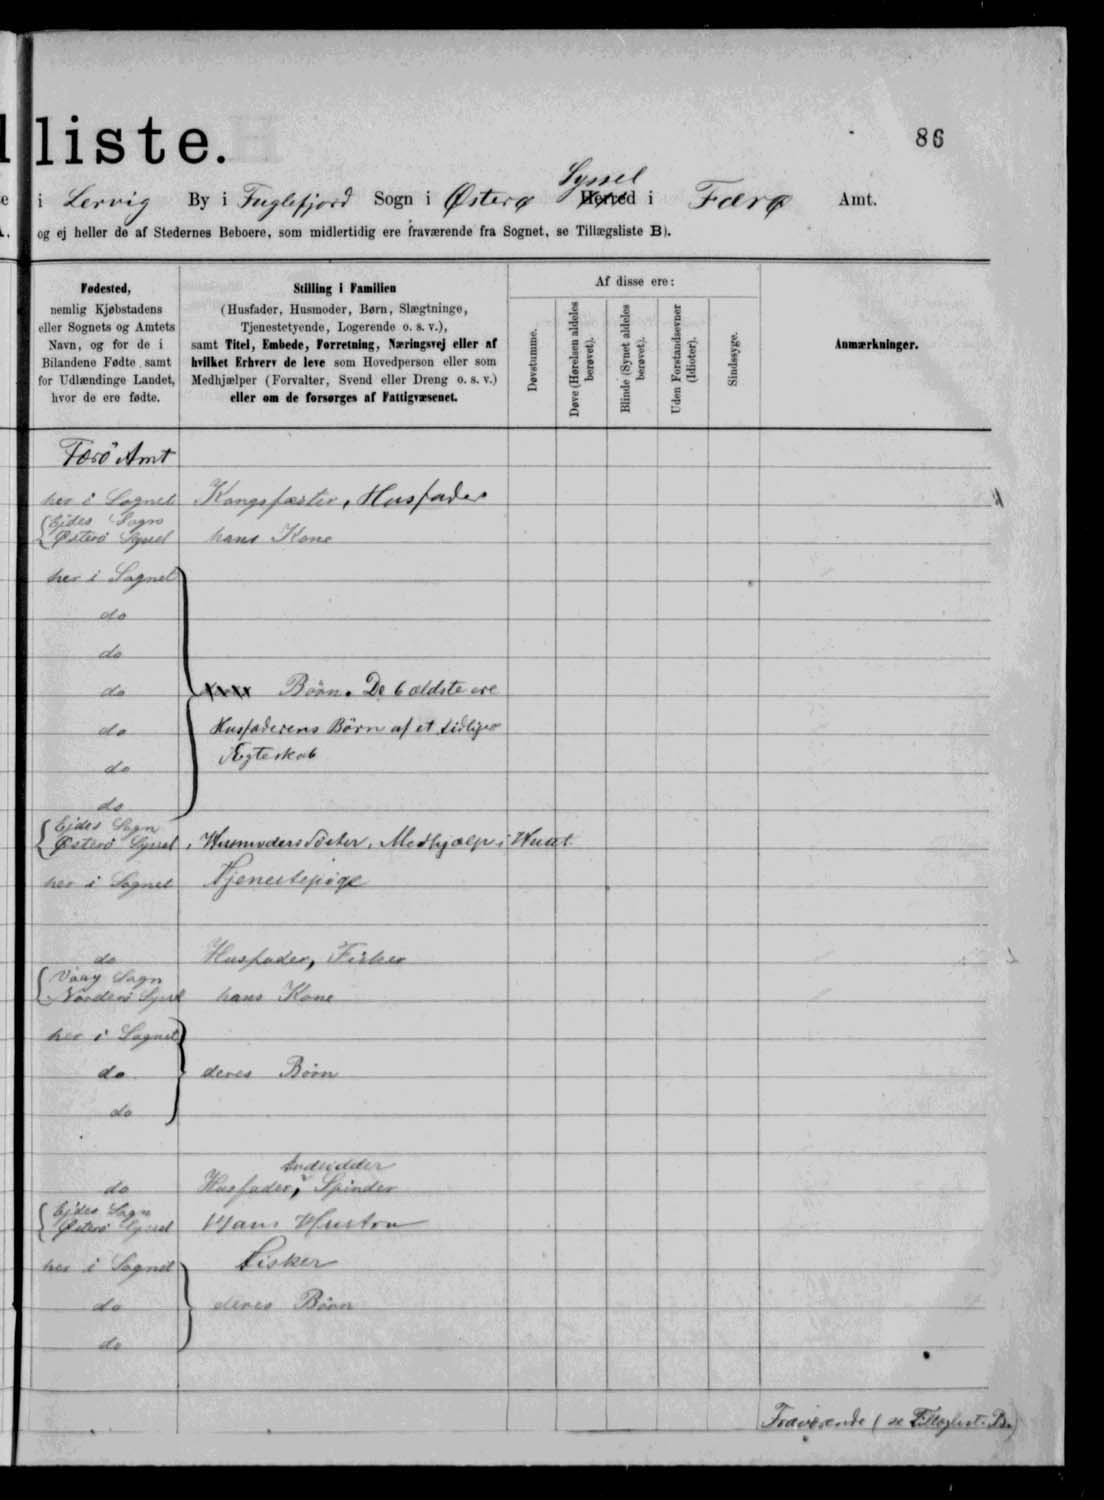 lliste.
86
i Lervig By i Fuglefjord Sogn i Østerø Syssel Herred i Færø Amt.
og ej heller de af Stedernes Beboere, som midlertidig ere fraværende fra Sognet, se Tillægsliste B).
Fødested,
nemlig Kjøbstadens
eller Sognets og Amtets
Navn, og for de i
Bilandene Fødte samt
for Udlændinge Landet,
hvor de ere fødte.
Stilling i Familien
(Husfader, Husmoder, Børn, Slægtninge,
Tjenestetyende, Logerende o. s. v.),
samt Titel, Embede, Forretning, Næringsvej eller af
hvilket Erhverv de leve som Hovedperson eller som
Medhjælper (Forvalter, Svend eller Dreng o. s. v.)
eller om de forsørges af Fattigvæsenet.
Af disse ere:
Døvstumme.
Døve (Hørelsen aldeles
berøvet).
Blinde (Synet aldeles
berøvet).
Uden Forstandsevner
(Idioter).
Sindssyge.
Anmærkninger.
Færö Amt
her i Sognet Kongsfæster, Husfader
Ejdes Sogn
Østerö Syssel hans Kone
her i Sognet
do
do
do Börn. De 6 ældste ere
do Husfaderens Börn af et tidligere
Ægteskab
do
do
Ejdes Sogn
Østerö Syssel Husmoders Söster, Medhjælp i Huset
her i Sognet Tjenestepige
do Husfader, Fisker
Vaag Sogn
Norderö Syssel hans Kone
her i Sognet
do deres Börn
do
Indsidder
do Husfader, Spinder
Ejdes Sogn
Østerö Syssel Hans Hustru
her i Sognet Fisker
do deres Börn
do
Fraværende (se Tillægslist. B.)